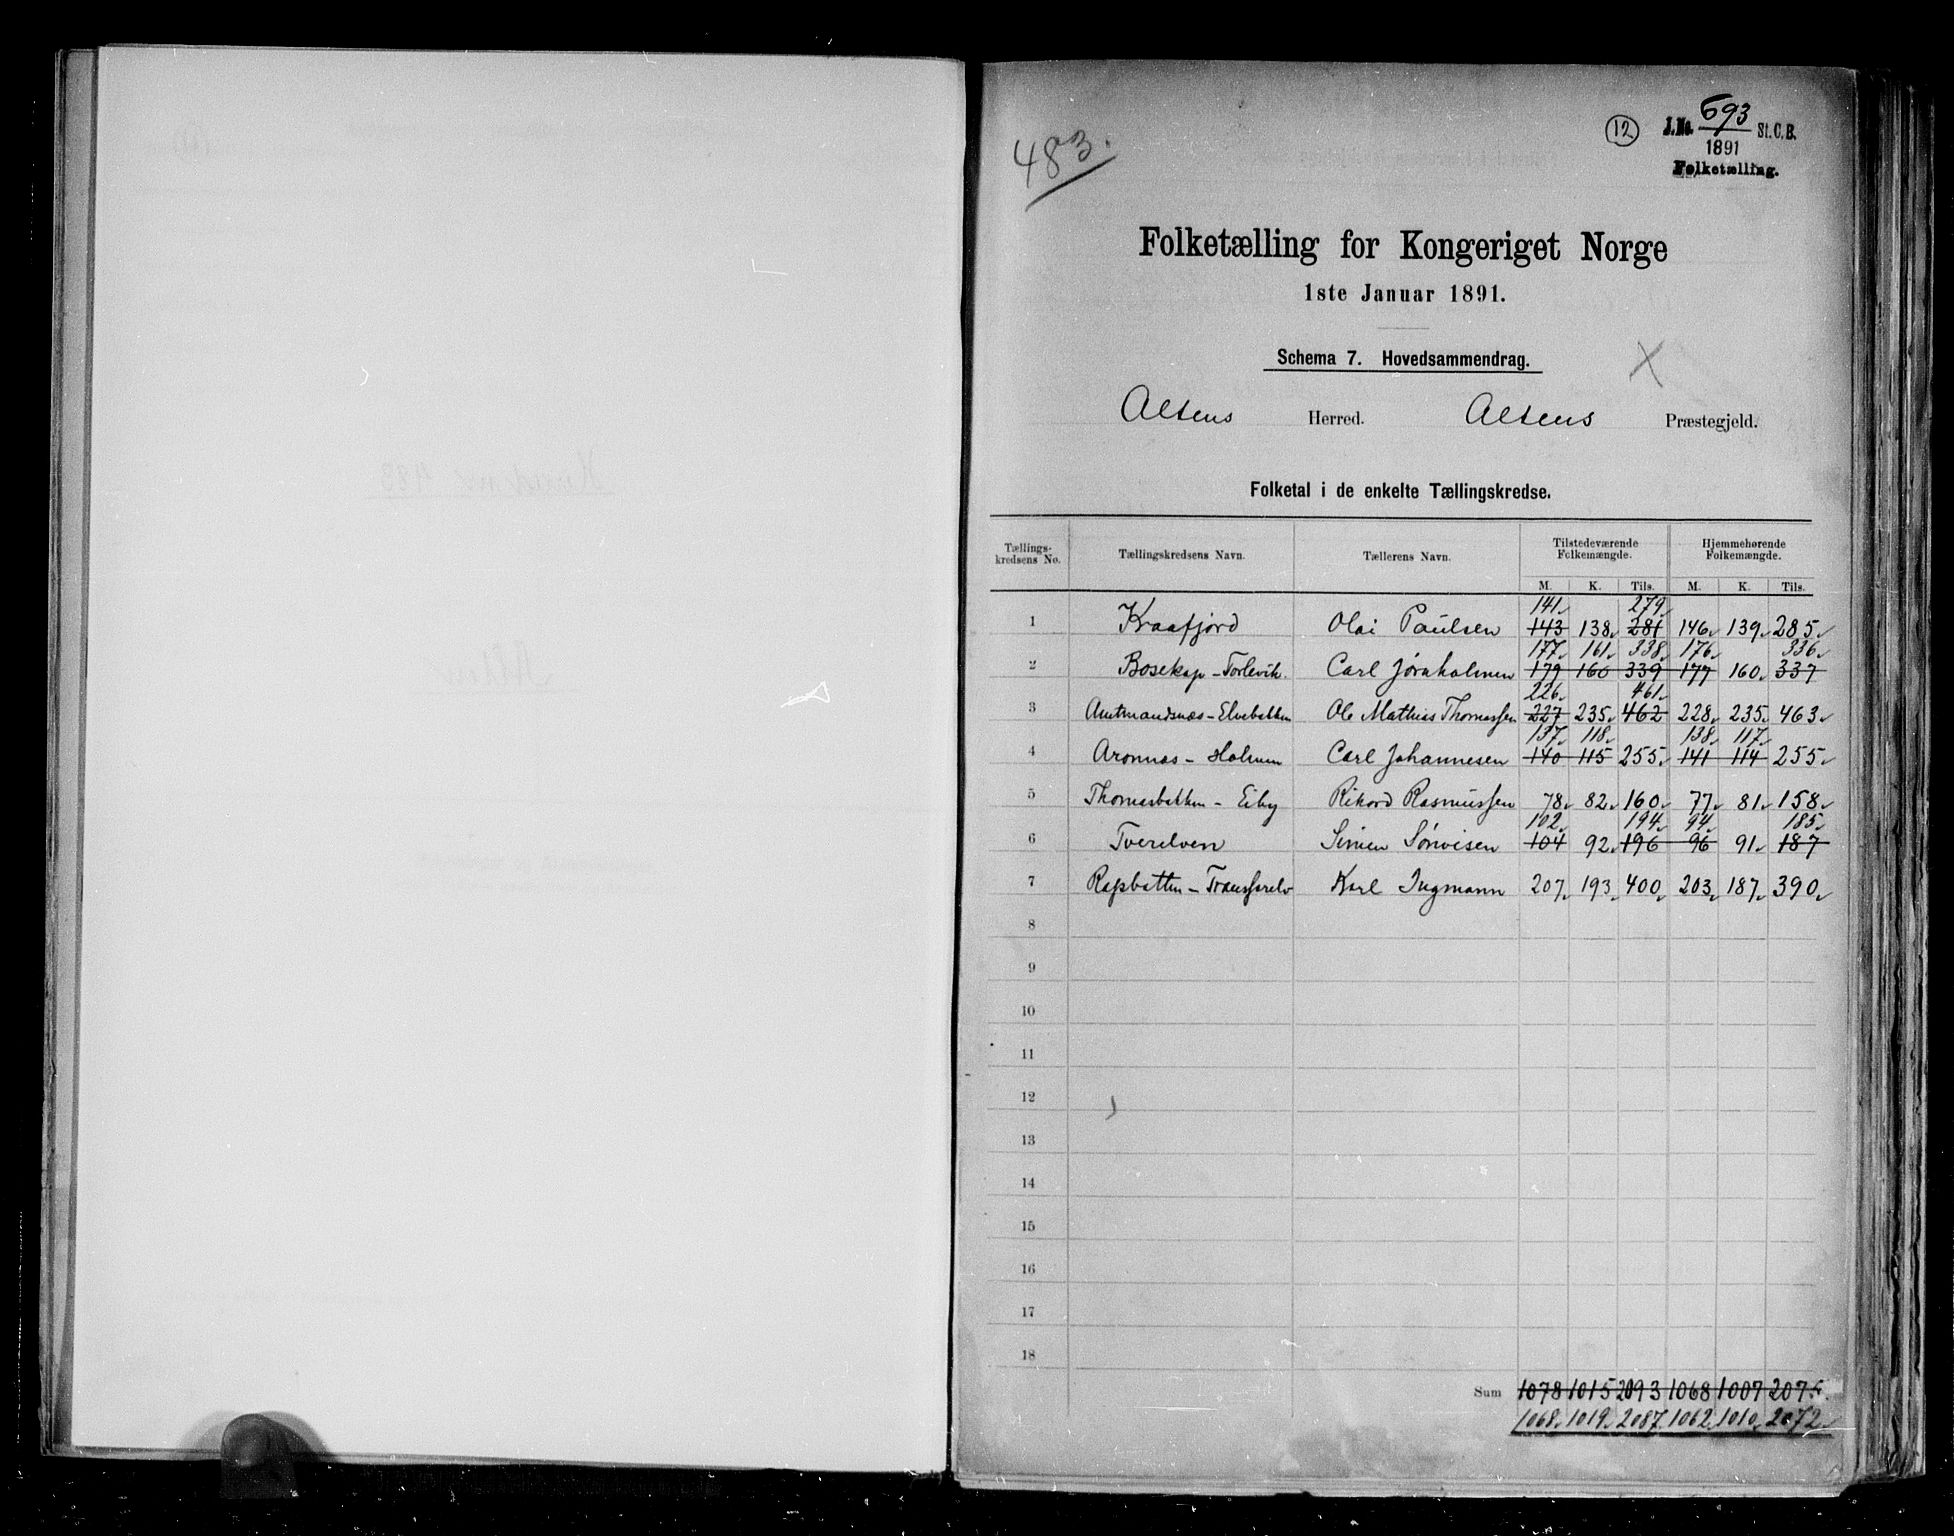 483.
12
J.No. 593 St.C.B.
1891
Folketælling.
Folketælling for Kongeriget Norge
1ste Januar 1891.
Schema 7. Hovedsammendrag.
Altens Herred. Altens Præstegjeld.
Folketal i de enkelte Tællingskredse.
Tællings-kredsens No. Tællingskredsens Navn. Tællerens Navn. Tilstedeværende Folkemængde. Hjemmehørende Folkemængde.
M. K. Tils. M. K. Tils.
141 279
1 Kraafjord Olai Paulsen 143 138 281 146 139 285
177 161 338 176 336
2 Bosekop - Carl 179 160 339 177 160 337
226 461
3 Amtmandsnæs - Elvebakken Ole Mathias Thomassen 227 235 462 228 235 463
137 118 138 117
4 Aronnæs - Holmen Carl Johannesen 140 115 255 141 114 255
5 Thomasbakken - Eiby Rikard Rasmussen 78 82 160 77 81 158
102 194 94 185
6 Tverelven Simen 104 92 196 96 91 187
7 Rafsbotten - Transfarelv Karl Ingmann 207 193 400 203 187 390
8
9
10
11
12
13
14
15
16
17
18
Sum 1078 1015 2093 1068 1007 2075
1068 1019 2087 1062 1010 2072